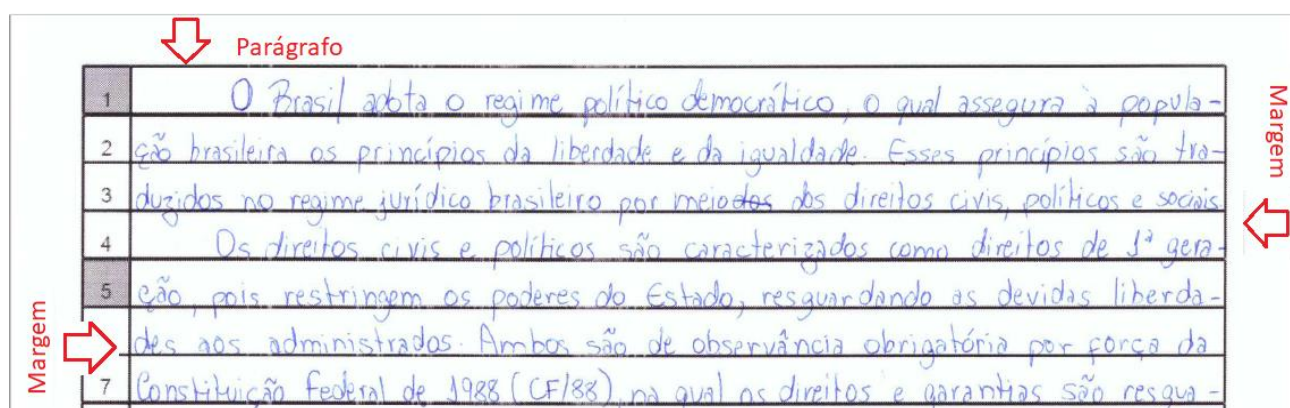 Parágrafo
1 O Brasil adota o regime político democrático, o qual assegura à popula-
2 ção brasileira os princípios da liberdade e da igualdade. Esses princípios são tra-
3 duzidos no regime jurídico brasileiro por meio dos dos direitos civis, políticos e sociais.
4 Os direitos civis e políticos são caracterizados como direitos de 1ª gera-
5 ção, pois restringem os poderes do Estado, resguardando as devidas liberda-
des aos administrados. Ambos são de observância obrigatória por força da
7 Constituição Federal de 1988 (CF/88), na qual os direitos e garantias são resgua-
Margem
Margem